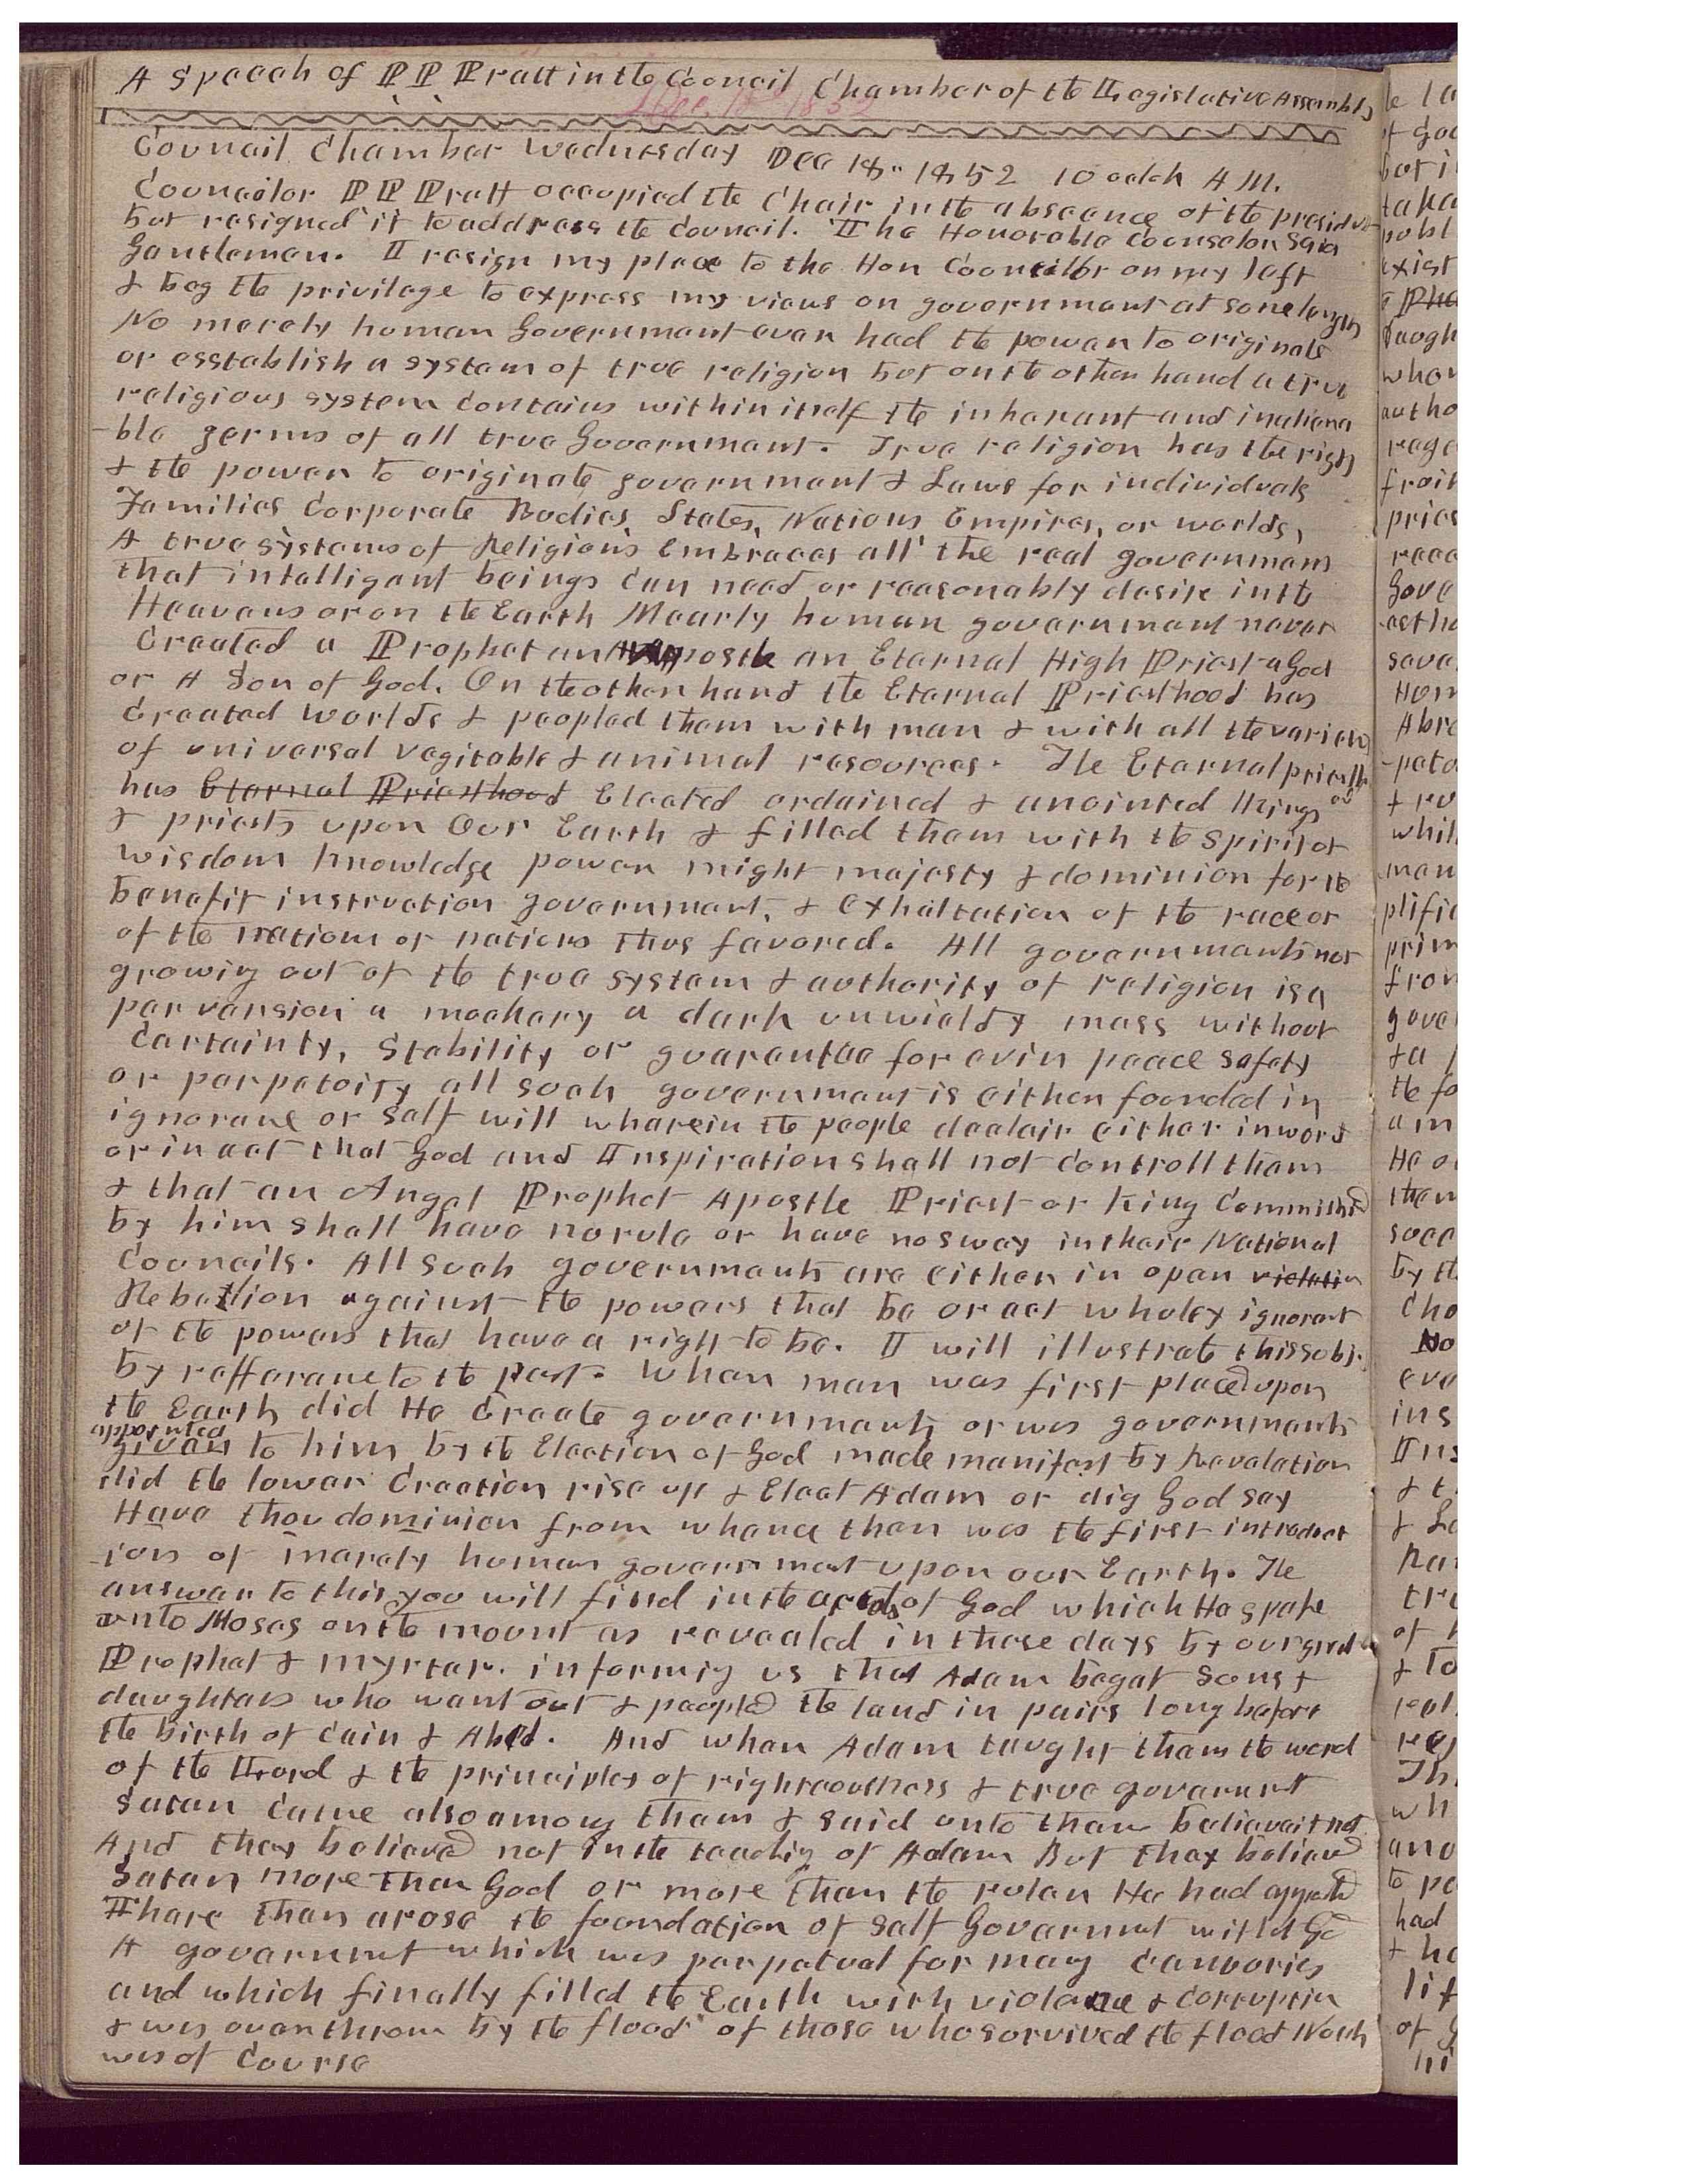 A Speech of P P Pratt in the Council Chamber of the Legislative Assembly
Dec. 18th 1852
Council Chamber Wednesday Dec 18" 1852 10 oclck A M.
Councilor P P Pratt occupied the Chair in the absceance of the presidut
but resigned it to address the Council. The Honorable Counselor Said
Gentlemen. I resign my place to the Hon Councilor on my left
& beg the privilege to express my views on government at some length
No merely human Government ever had the power to originate
or esstablish a system of true religion but on the other hand a true
religious system contains within itself the inherant and inaliena
-ble germs of all true Government. True religion has the right
& the power to originate government & Laws for individuals
Families Corporate Bodies, States, Nations Empires, or worlds,
A true systems of Religions Embraces all the real governmen
that intelligent beings can need or reasonably desire in the
Heavens or on the Earth Mearly human government never
Created a Prophet an Apostle an Eternal High Priest a God
or A Son of God. On the other hand the Eternal Priesthood has
Created worlds & peopled them with man & with all the variety
of universal vegitable & animal resources. The Eternal priesth
ood
has Eternal Priesthood Elected ordained & anointed Kings
& priests upon Our Earth & filled them with the spirit of
wisdom knowledge power might majesty & dominion for the
benefit instruction government, & Exhaltation of the race or
of the nations or nations thus favored. All governments not
growing out of the true system & authority of religion is a
perversion a mockery a dark unwieldy mass without
Certainty, Stability or guarantee for evin peace safety
or perpetuity all such government is either founded in
ignorance or self will wherein the people declair either in word
or in act that God and Inspiration shall not controll them
& that an Angel Prophet Apostle Priest or King Commissind
by him shall have no rule or have no sway in their National
Councils. All such governments are either in open violatin
Rebellion against the powers that be or act wholey ignorant
of the powers that have a right to be. I will illustrate this subj.
by refferance to the past. When man was first placed upon
the Earth did He Create governments or was governments
appointed
given to him by the Election of God made manifest by Revelation
did the lower Creation rise up & Elect Adam or dig God say
Have thou dominion from whence then was the first introduct
-ion of merely human government upon our Earth. The
answer to this you will find in the words of God which He spake
unto Moses on the mount as revealed in these days by our great
Prophet & Myrter. informing us that Adam begat Sons &
daughters who went out & peopled the land in pairs long before
the birth of Cain & Abel. And when Adam taught them the word
of the Lord & the principles of righteousness & true governmt
Satan Came also among them & Said unto them believe it not
And they believed not in the teaching of Adam But they believed
Satan more than God or more than the ruler He had appointd
There then arose the foundation of Self Governmt
A governmt which was perpetual for many Centuries
and which finally filled the Earth with violence & Corruptin
& was overthrown by the flood of those who survived the flood Noah
was of Course